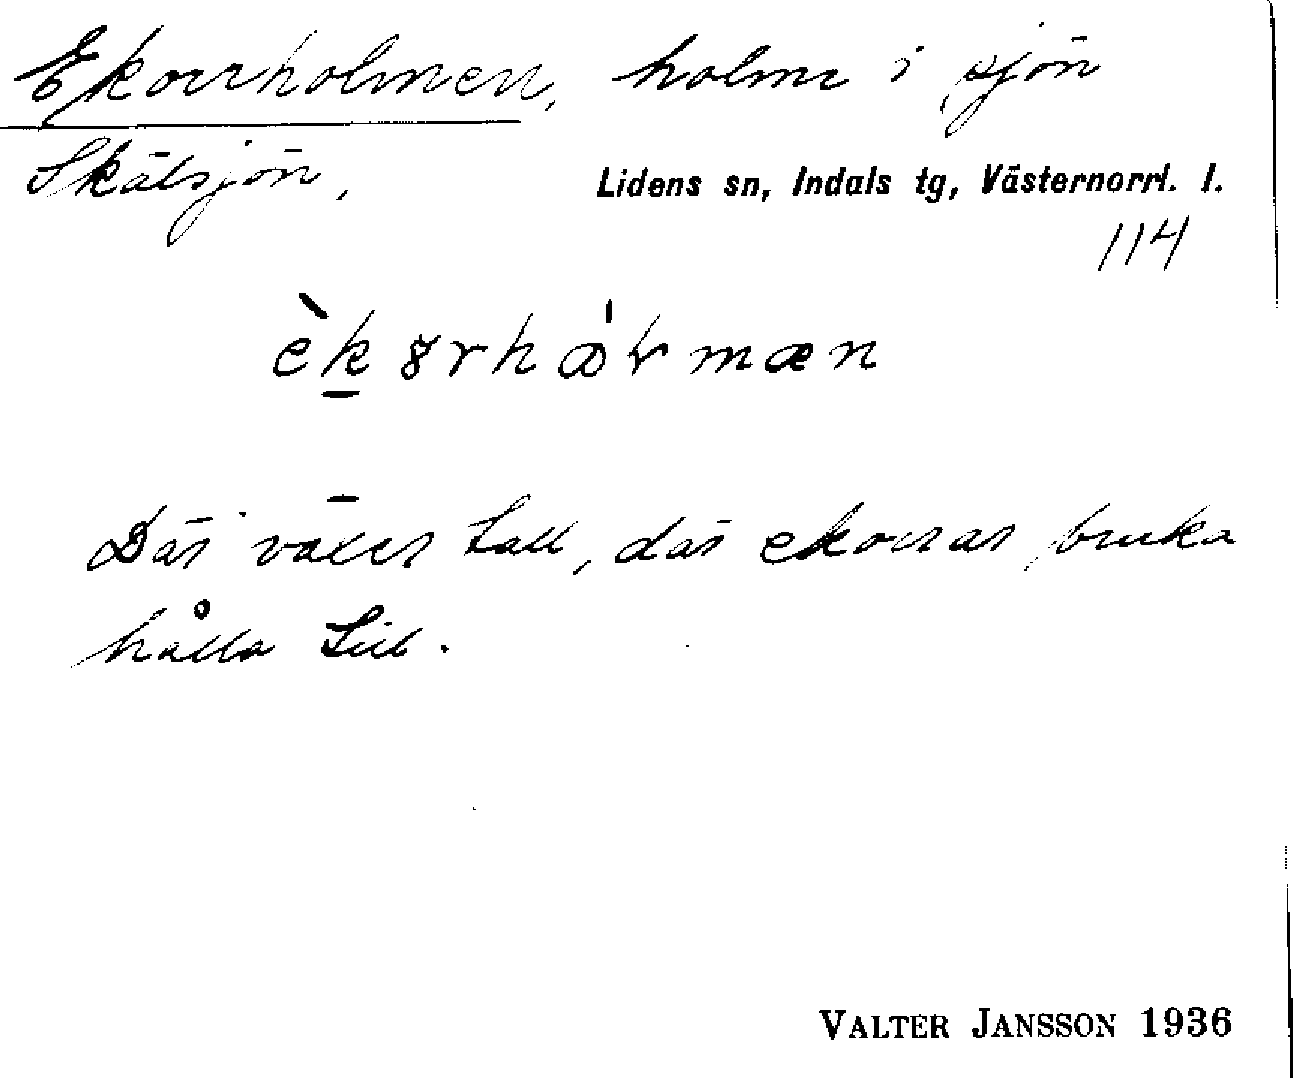 Ekorrholmen, holme i sjön
Skälsjön,
Lidens sn, Indals tg, Västernorrl. l.
114
Där växer tall, där ekorrar bruka
hålla till.
VALTER JANSSON 1936